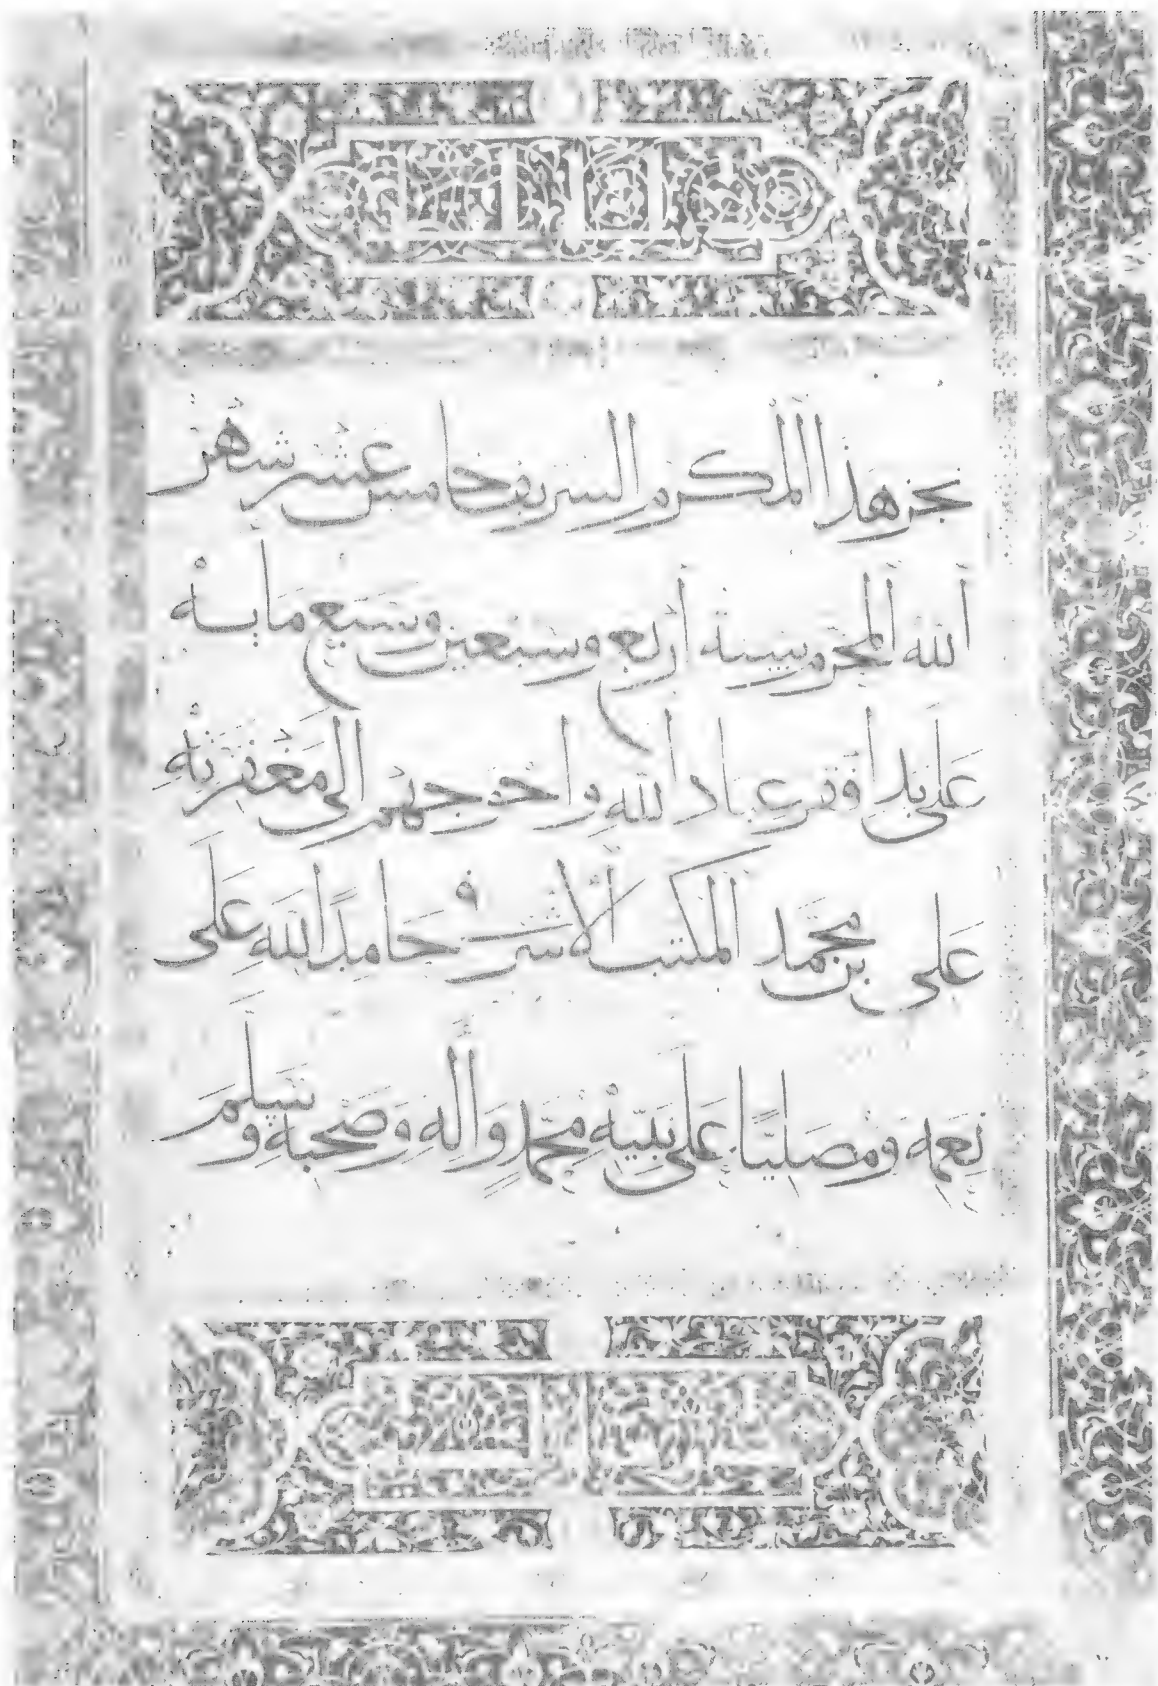 نجز هذا المكرم الشريف خامس عشر شهر
الله المحرم سنة أربع وسبعين وسبع مايه
على يد أفقر عباد الله واحوجهم إلى مغفرته
على بن محمد المكتب الأشرفى حامدًا لله على
نعمه ومصليًا على نبيه محمد وآله وصحبه وسلم